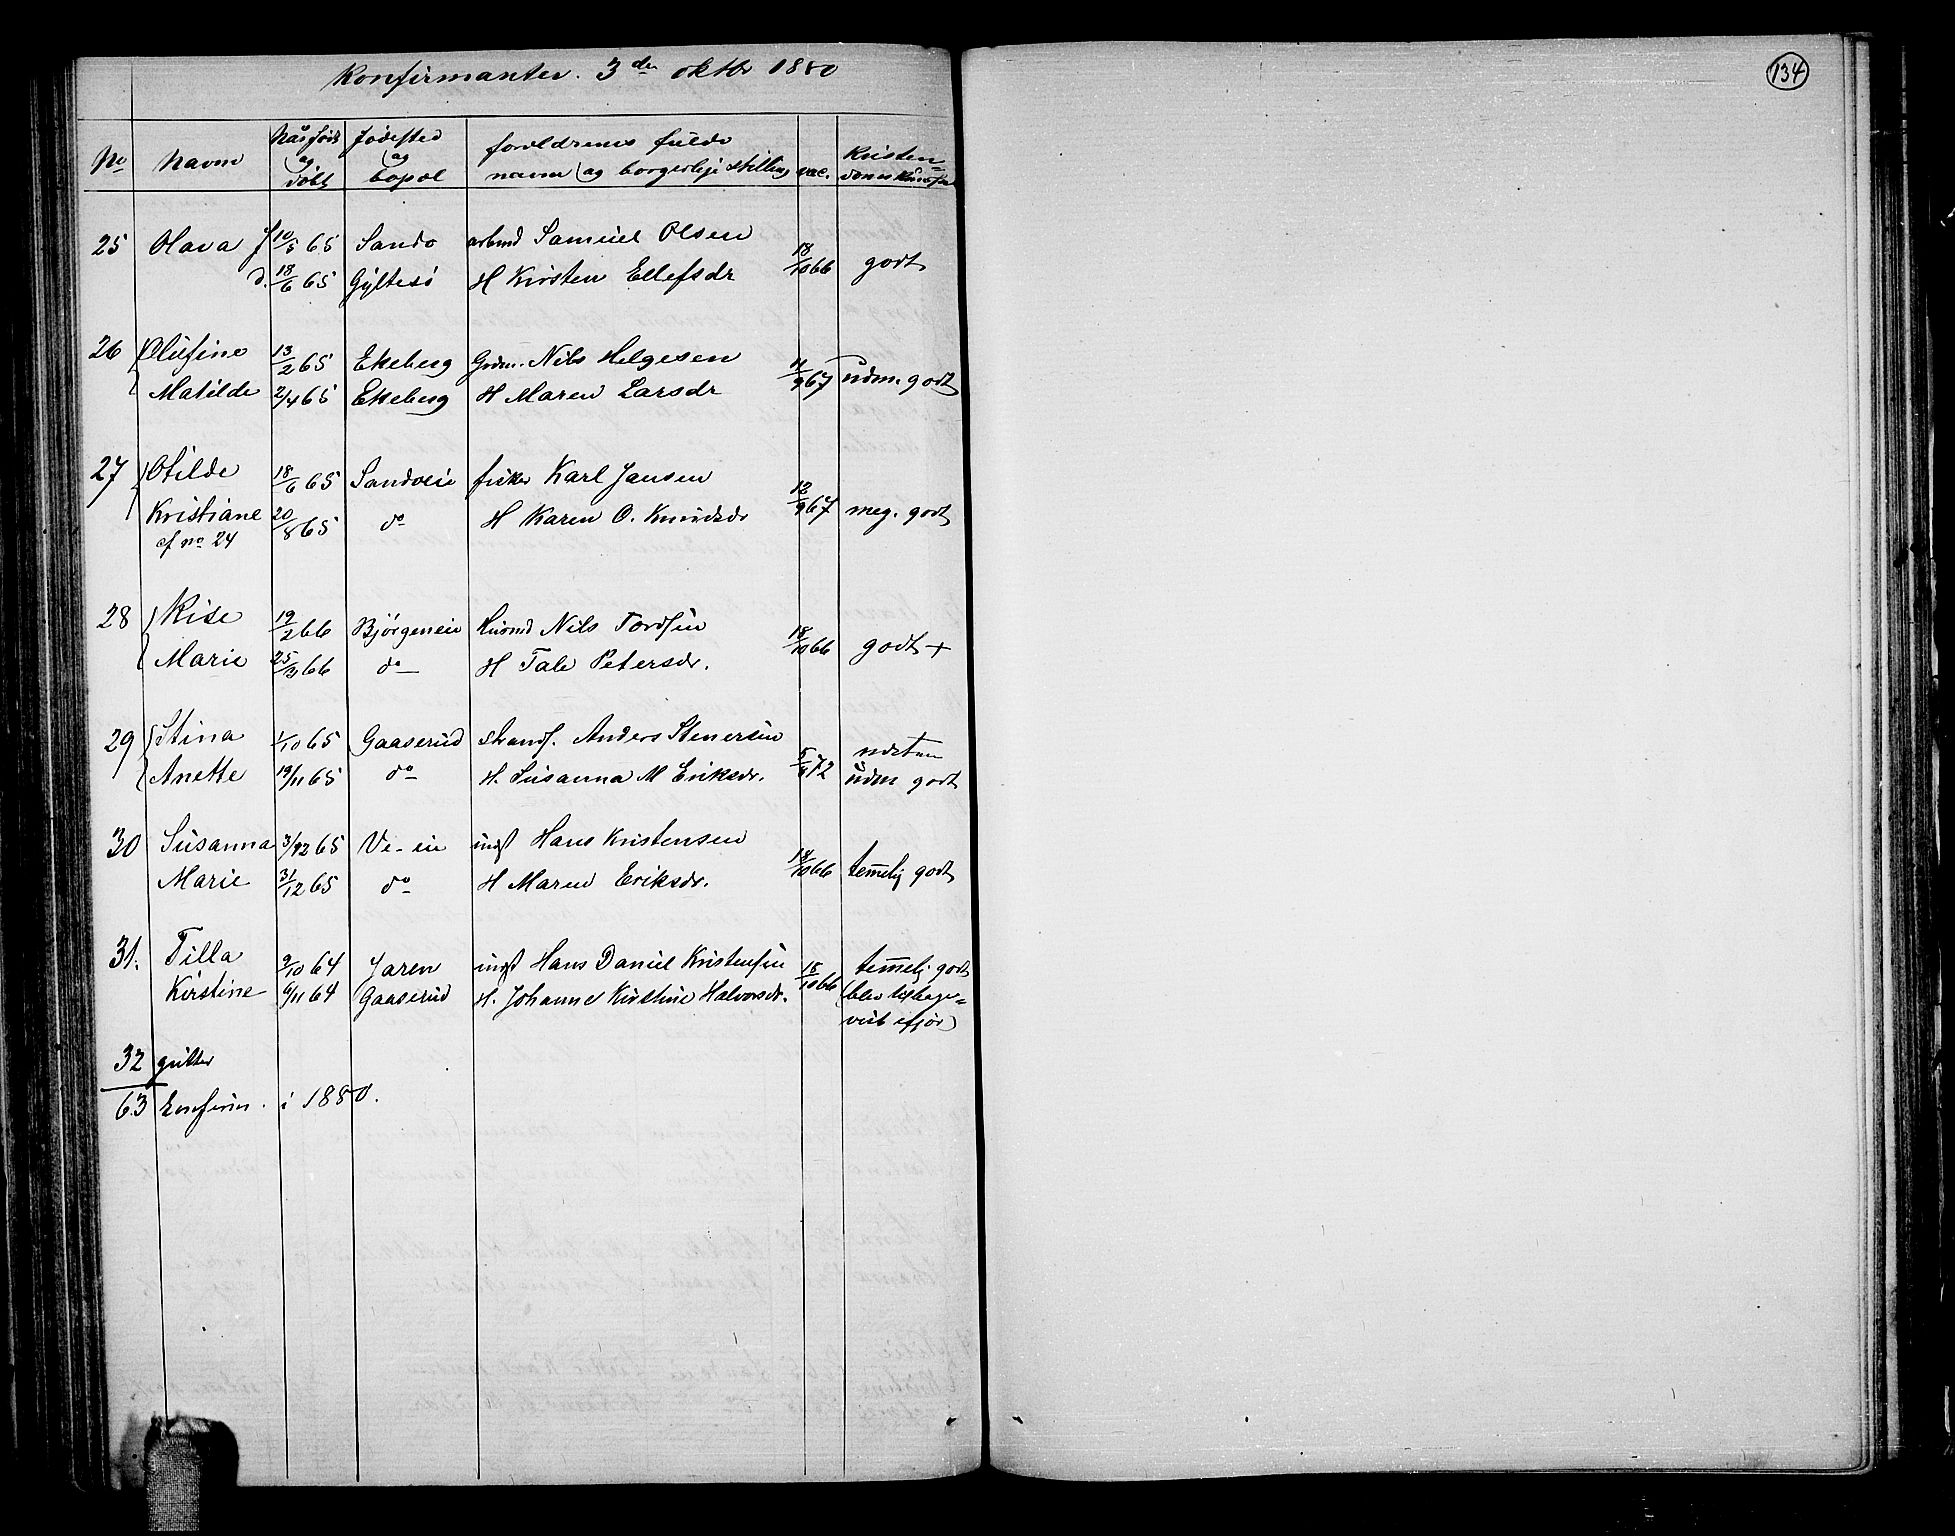 134
Konfirmanter. 3de oktbr 1880
No Navn Når født og døbt fødested og bopæl foreldrenes fulde navn og borgerlige stilling vac. Kristendomskundsk.
25 Olava f 10/5 65 Sando arbmd Samuel Olsen 18/10 66 godt
d. 18/6 65 Gyltesö H Kirsten Ellefsdr
26 Olufine 13/2 65 Ekeberg Grdm. Nils Helgesen 11/9 67 udm. godt
Matilde 2/4 65 Ekeberg H Maren Larsdr
27 Otilde 18/6 65 Sandveie fisker Karl Jansen 12/9 67 meg. godt
Kristiane 20/8 65 do H Karen O. Knudsdr
cf no 24
28 Rise 19/2 66 Bjørgeneie Husmd Nils Tordsen 18/10 66 godt +
Marie 25/3 66 do H Tale Petersdr.
29 Stina 1/10 65 Gaaserud strandf. Anders Stenersen 5/6 72 næsten
Anette 19/11 65 do H. Susanna M Eriksdr. udm godt
30 Susanna 3/12 65 Ve-eie indst Hans Kristensen 18/10 66 temelig godt
Marie 31/12 65 do H Maren Eriksdr.
31. Tilla 9/10 64 Jaren indst Hans Daniel Kristensen 18/10 66 temelig godt
Kirstine 6/11 64 Gaaserud H. Johanne Kirstine Halvorsdr. (blev tilbage-
vist ifjor)
32 gutter
63 konfirm. i 1880.